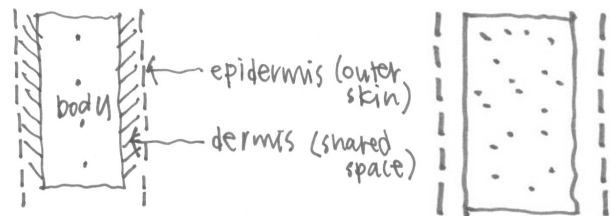 body
epidermis (outer
skin)
dermis (shared
space)